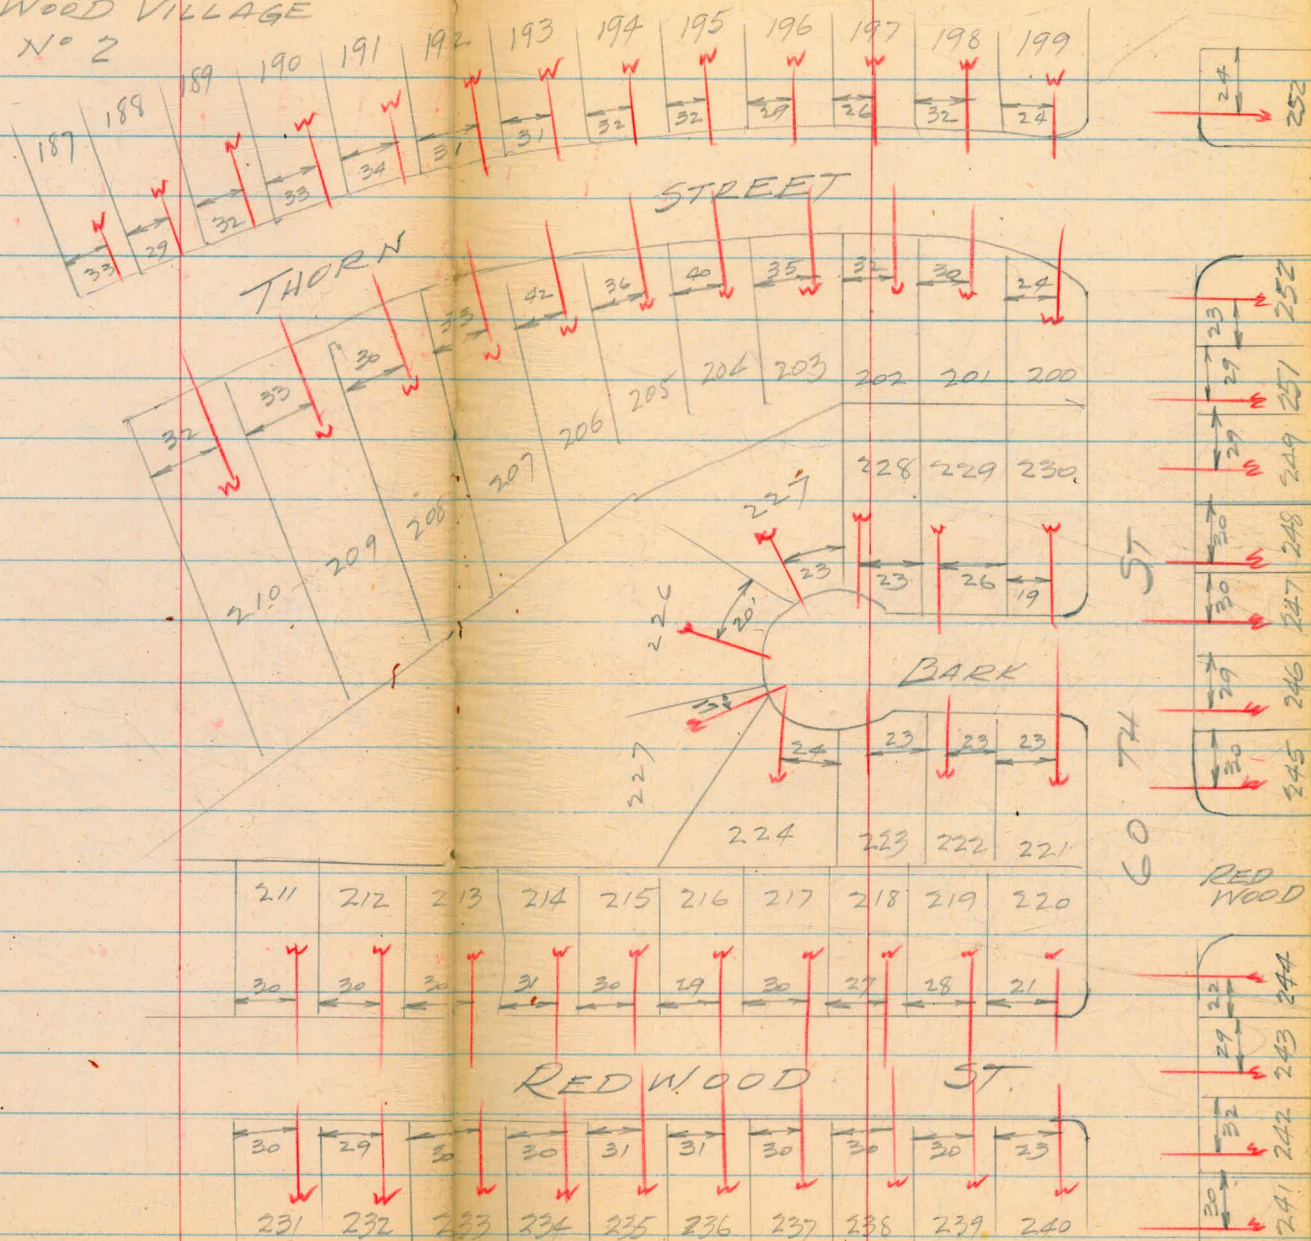 WOOD VILLAGE
No 2
187 188 189 190 191 192 193 194 195 196 197 198 199
W W W W W W W W W W W W W
33 29 32 33 34 31 31 32 32 29 26 32 24
THORN STREET
32 33 30 33 42 36 40 35 32 30 24
W W W W W W W W W W W
210 209 208 207 206 205 204 203 202 201 200
228 229 230
227
W W W W
23 23 26 19
226
20'
BARK
227
24 23 23 23
224 223 222 221
60 TH ST
211 212 213 214 215 216 217 218 219 220
W W W W W W W W W W
30 30 30 31 30 29 30 27 28 21
REDWOOD ST.
30 29 30 30 31 31 30 30 30 23
231 232 233 234 235 236 237 238 239 240
24 252
23 252
29 251
29 249
30 248
30 247
29 246
30 245
RED
WOOD
22 244
29 243
32 242
30 241